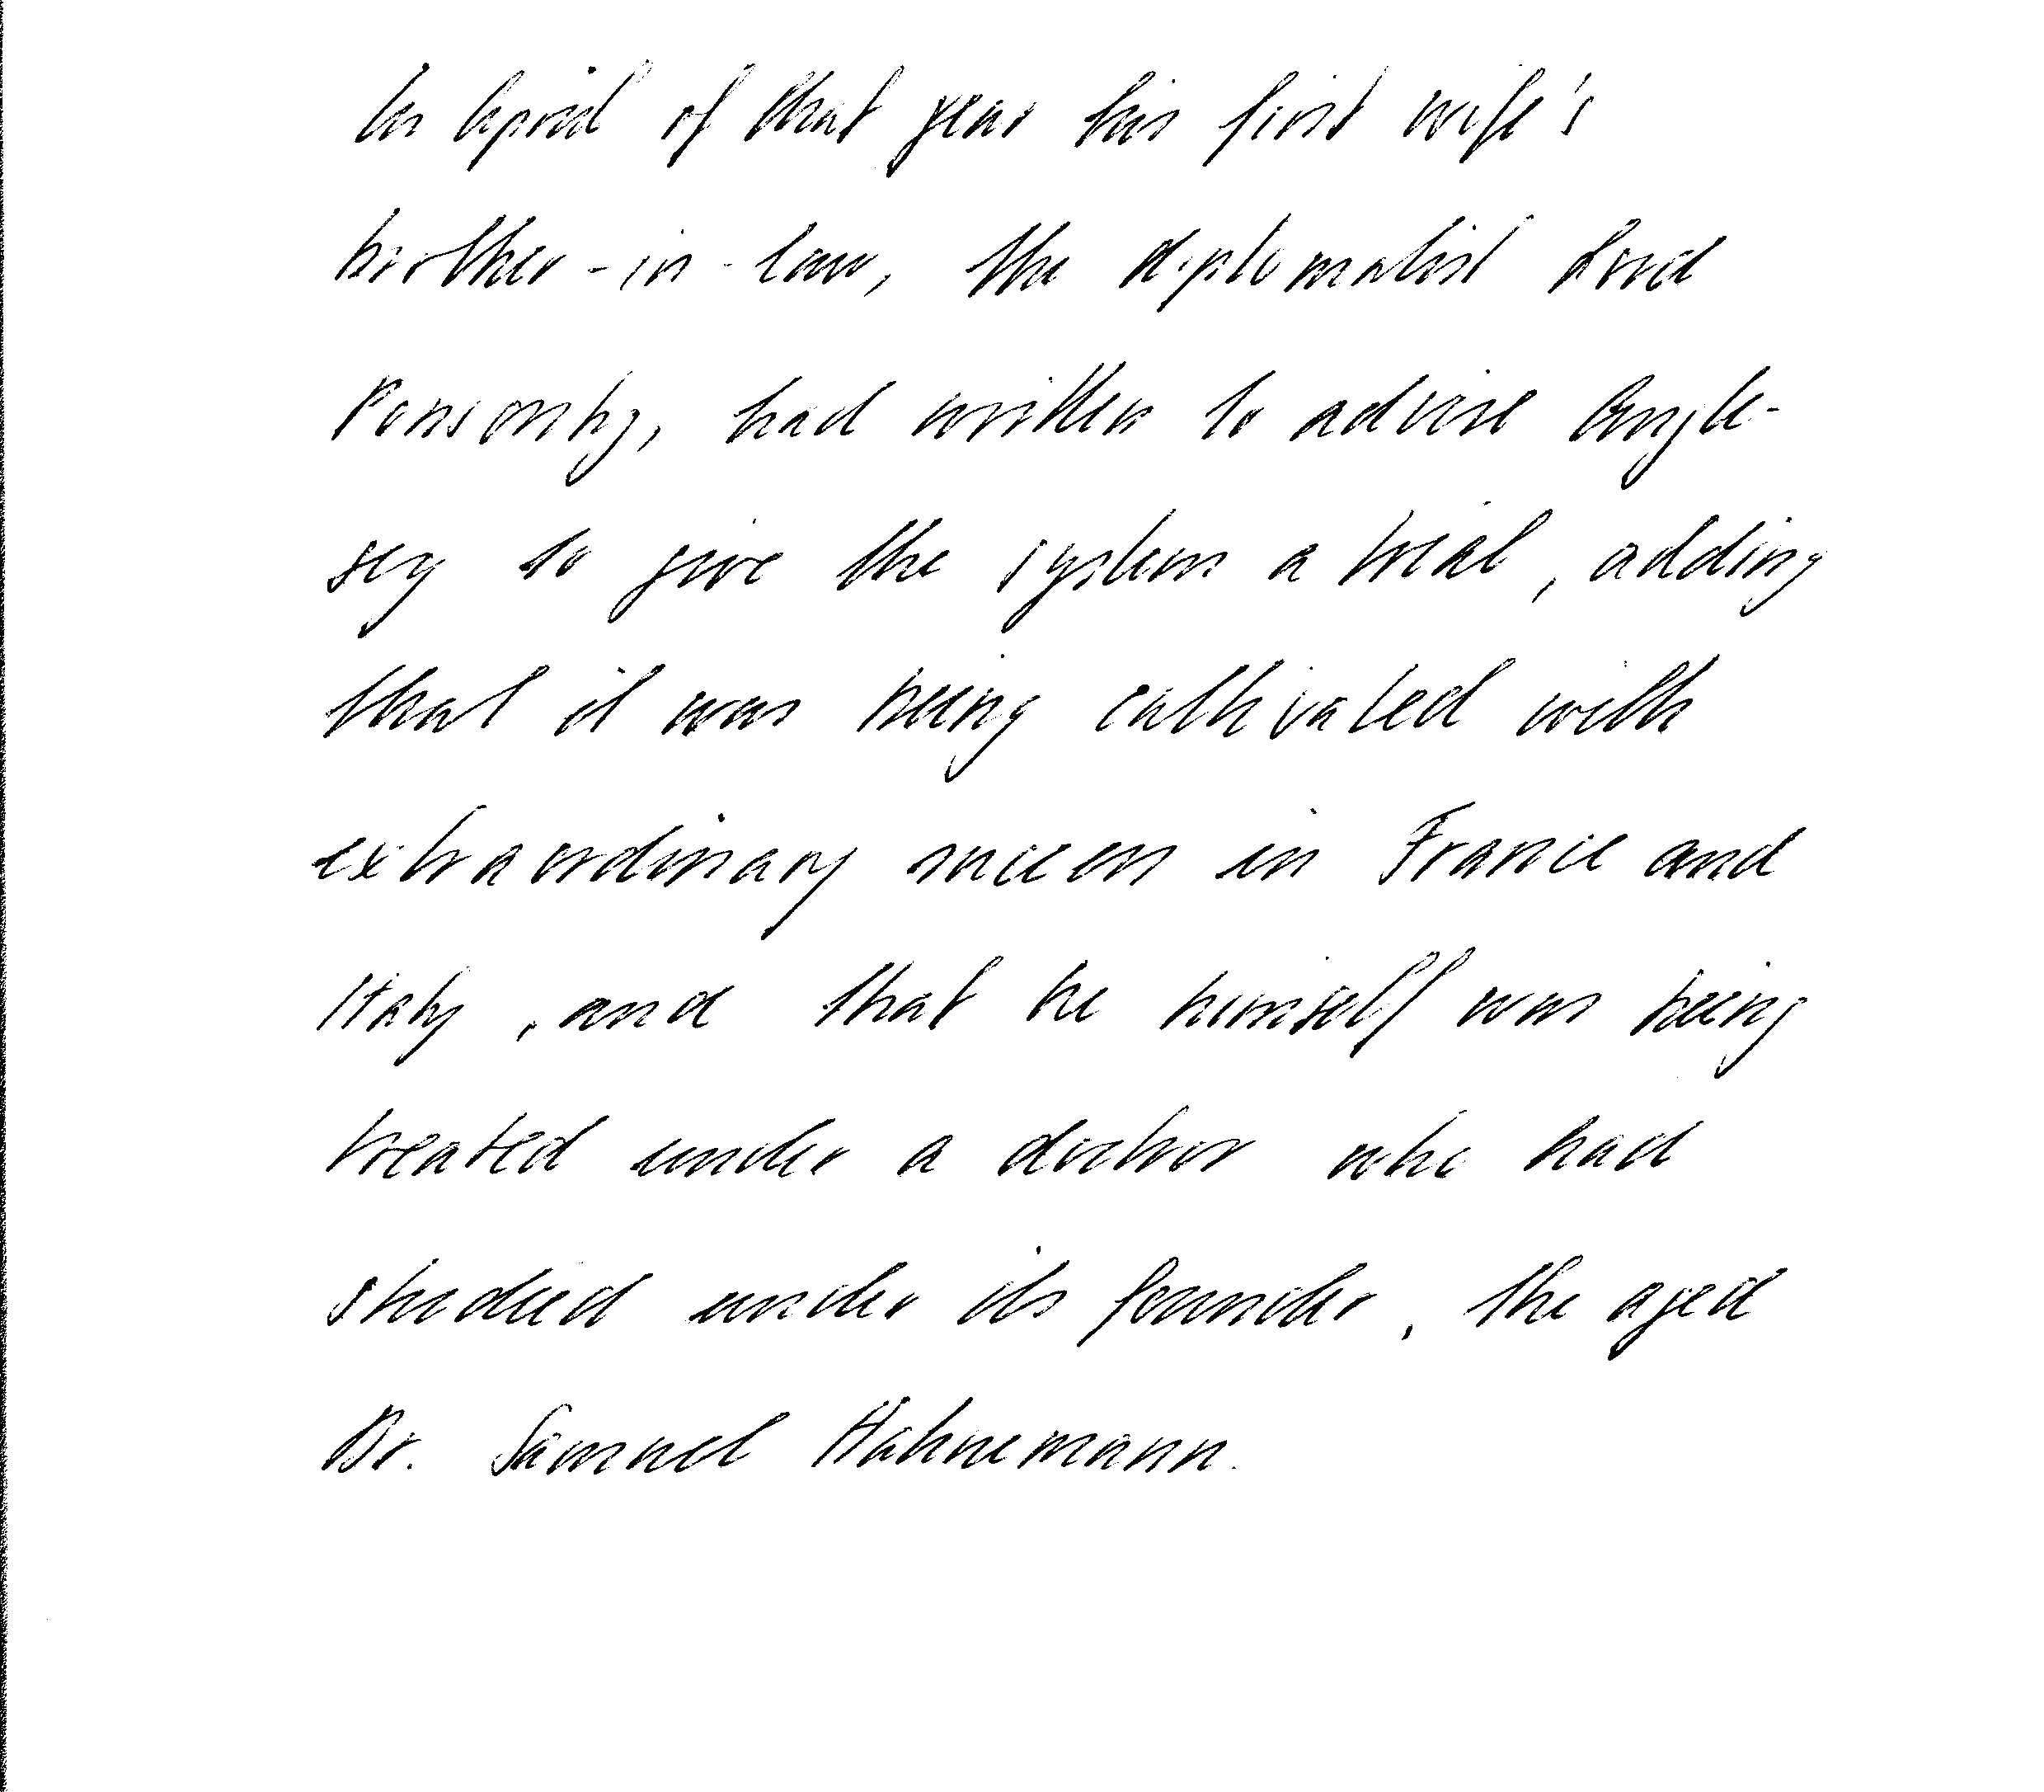 In April of that year his first wife's
brother-in-law, the diplomatist Lord
Ponsonby, had written to advise Angle-
sey to give the system a trial, adding
that it was being cultivated with
extraordinary success in France and
Italy, and that he himself was being
treated under a doctor who had
studied under its founder, the aged
Dr. Samuel Hahnemann.